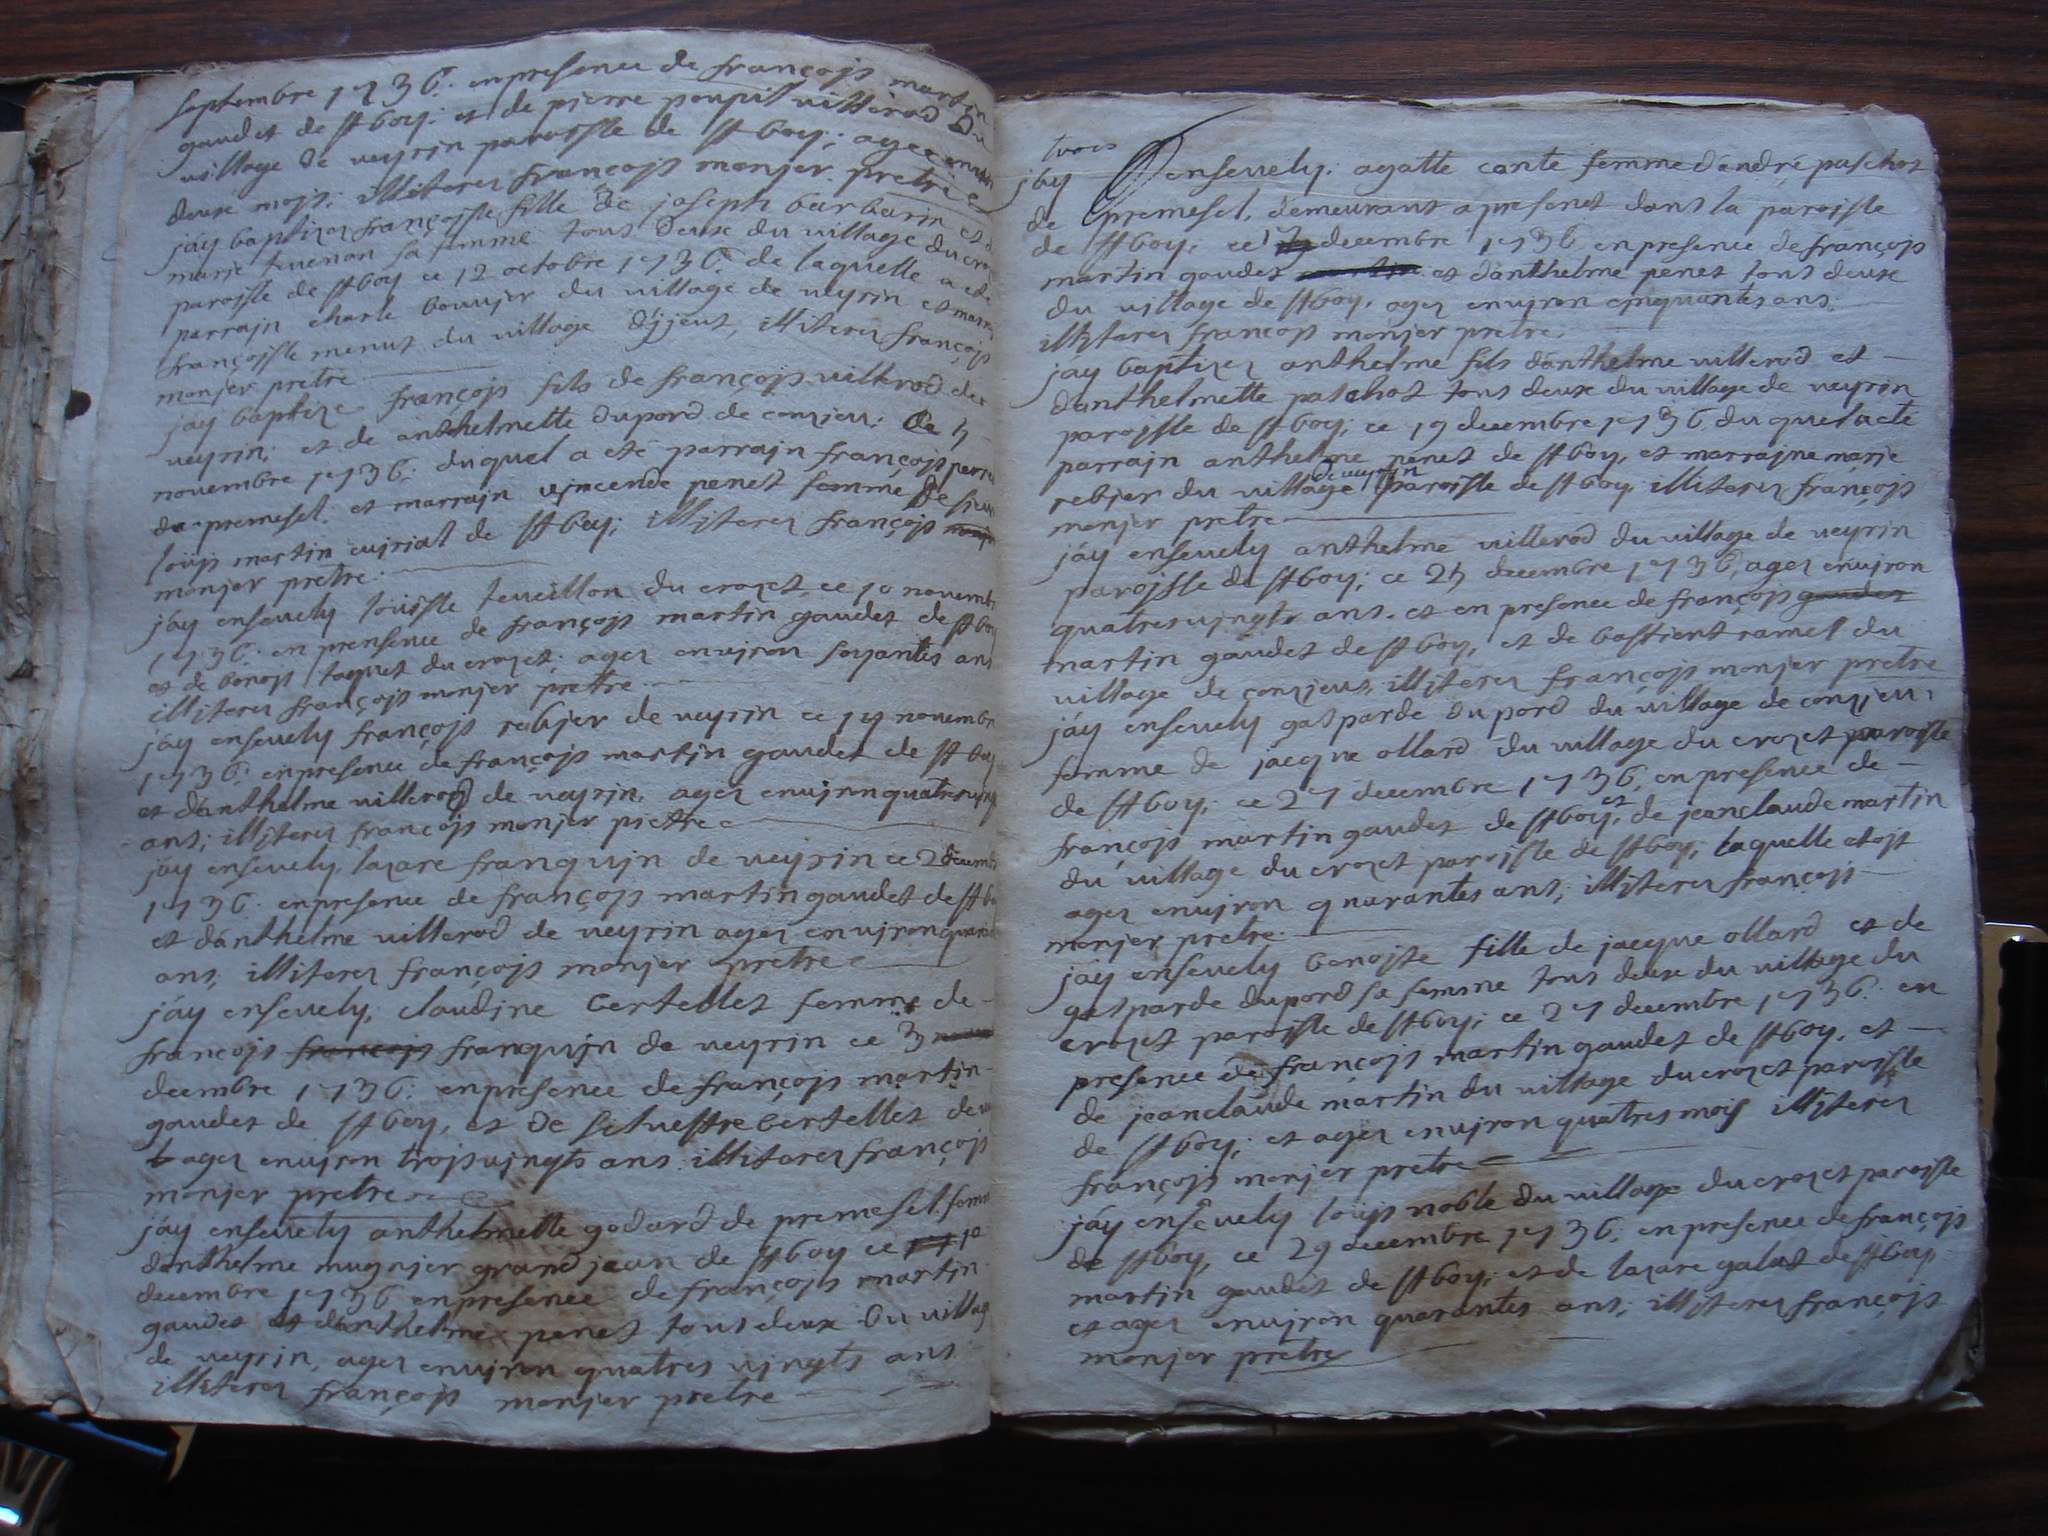 septembre 1736. en presence de françojs martin
gaudet de st boy; et de pierre poupil villerod du
village de veyrin parojsse de st boy; agee environ
deux mojs; illiterez françojs monjer pretre
jáy baptizez françojsse fille de joseph barbarin et de
marje tevenon sa femme tous deux du village du croz
parojsse de st boy ce 12 octobre 1736. de laquelle a ete
parrajn charle bouvjer du village de veyrin et marr
françojsse menut du village d'jjeut, illiterez françojs
monjer pretre
jáy baptize françojs fils de françojs villerod de
veyrin; et de anthelmette dupord de conzieu; ce 4
novembre 1736. duquel a ete parrajn françojs perre
de premesel. et marrajn vjncende penet femme de sieur
louys martin cujrial de st boy; illiterez françojs
monjer pretre.
jáy ensevely louisse teveillon du crozet, ce 10 novembre
1736. en prensence de françojs martin gaudet de st boy
et de benojs taquet du crozet; agez envjron sojantes ans
illiterez françojs monjer pretre
jáy ensevely françojs rebjer de veyrin ce 14 novembre
1736. en presence de françojs martin gaudet de st boy
et dánthelme villerod de veyrin, agez envjron quatresvjngt
ans; illiterez françojs monjer pretre
jáy ensevely, lazare franquyn de veyrin ce 2 decembre
1736. en presence de françojs martin gaudet de st boy
et dánthelme villerod de veyrin agez envjron quarante
ans, illiterez françojs monjer pretre
jáy ensevely; claudine bertellet femme de
françojs françojs franquyn de veyrin ce 3
decembre 1736. en presence de françojs martin
gaudet de st boy, et de silvestre bertellet de
agez envjron trojs vjngts ans illiterez françojs
monjer pretre
jáy ensevely anthelmette godard de premesel. femme
dánthelme mugnjer grand jean de st boy ce 10
decembre 1736 en presence de françojs martin
gaudet et dánthelme penet tous deux du village
de veyrin, agez envjron quatres vjngts ans
illiterez françojs monjer pretre
jáy ensevely. agatte cante femme dándré paschot
de premesel, demeurant a present dans la parojsse
de st boy. ce decembre 1736 en presence de françojs
martin gaudet martin et dánthelme penet tous deux
du village de st boy. agez envjron cjnquantes ans.
illiterez françojs monjer pretre.
jáy baptizez anthelme fils dánthelme villerod et
dánthelmette paschot tous deux du village de veyrin
parojsse de st boy; ce 19 decembre 1736 du quel a ete
parrajn anthelme penet de st boy, et marrajne marje
rebjer du village de veyrin parojsse de st boy. illiterez françojs
monjer pretre
jáy ensevely anthelme villerod du village de veyrin
parojsse de st boy; ce 24 decembre 1736, agez envjron
quatresvjngts ans. et en presence de françojs gaudet
martin gaudet de st boy, et de bastient ramel du
village de conzieux, illiterez françojs monjer pretre
jáy ensevely gasparde dupord du village de conzieu,
femme de jacque ollard du village du crozet parojsse
de st boy; ce 27 decembre 1736, en presence de
françojs martin gaudet de st boy, et de jeanclaude martin
du village du crozet parojsse de st boy; laquelle etojt
agez envjron quarantes ans; illiterez françojs
monjer pretre.
jáy ensevely benojte fille de jacque ollard et de
gasparde dupord sa femme tous deux du village du
crozet parojsse de st boy; ce 27 decembre 1736. en
presence de françojs martin gaudet de st boy, et
de jeanclaude martin du village du crozet parojsse
de st boy; et agez envjron quatres mojs illiterez
françojs monjer pretre
jáy ensevely louys noble du village du crozet parojsse
de st boy, ce 29 decembre 1736. en presence de françojs
martin gaudet de st boy; et de lazare galast de st boy
et agez envjron quarantes ans; illiterez françojs
monjer pretre